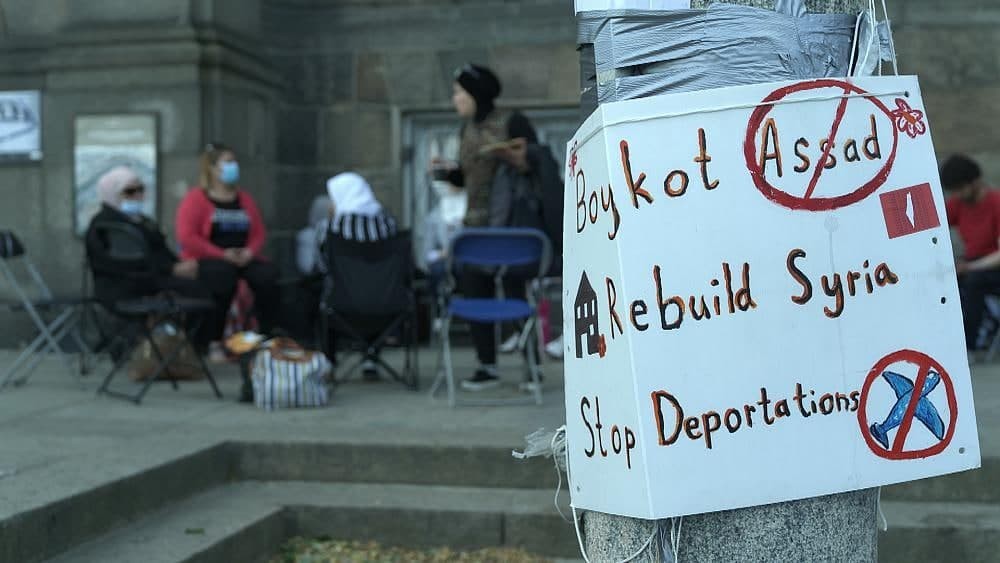 Boykot Assad
Rebuild Syria
Stop Deportations